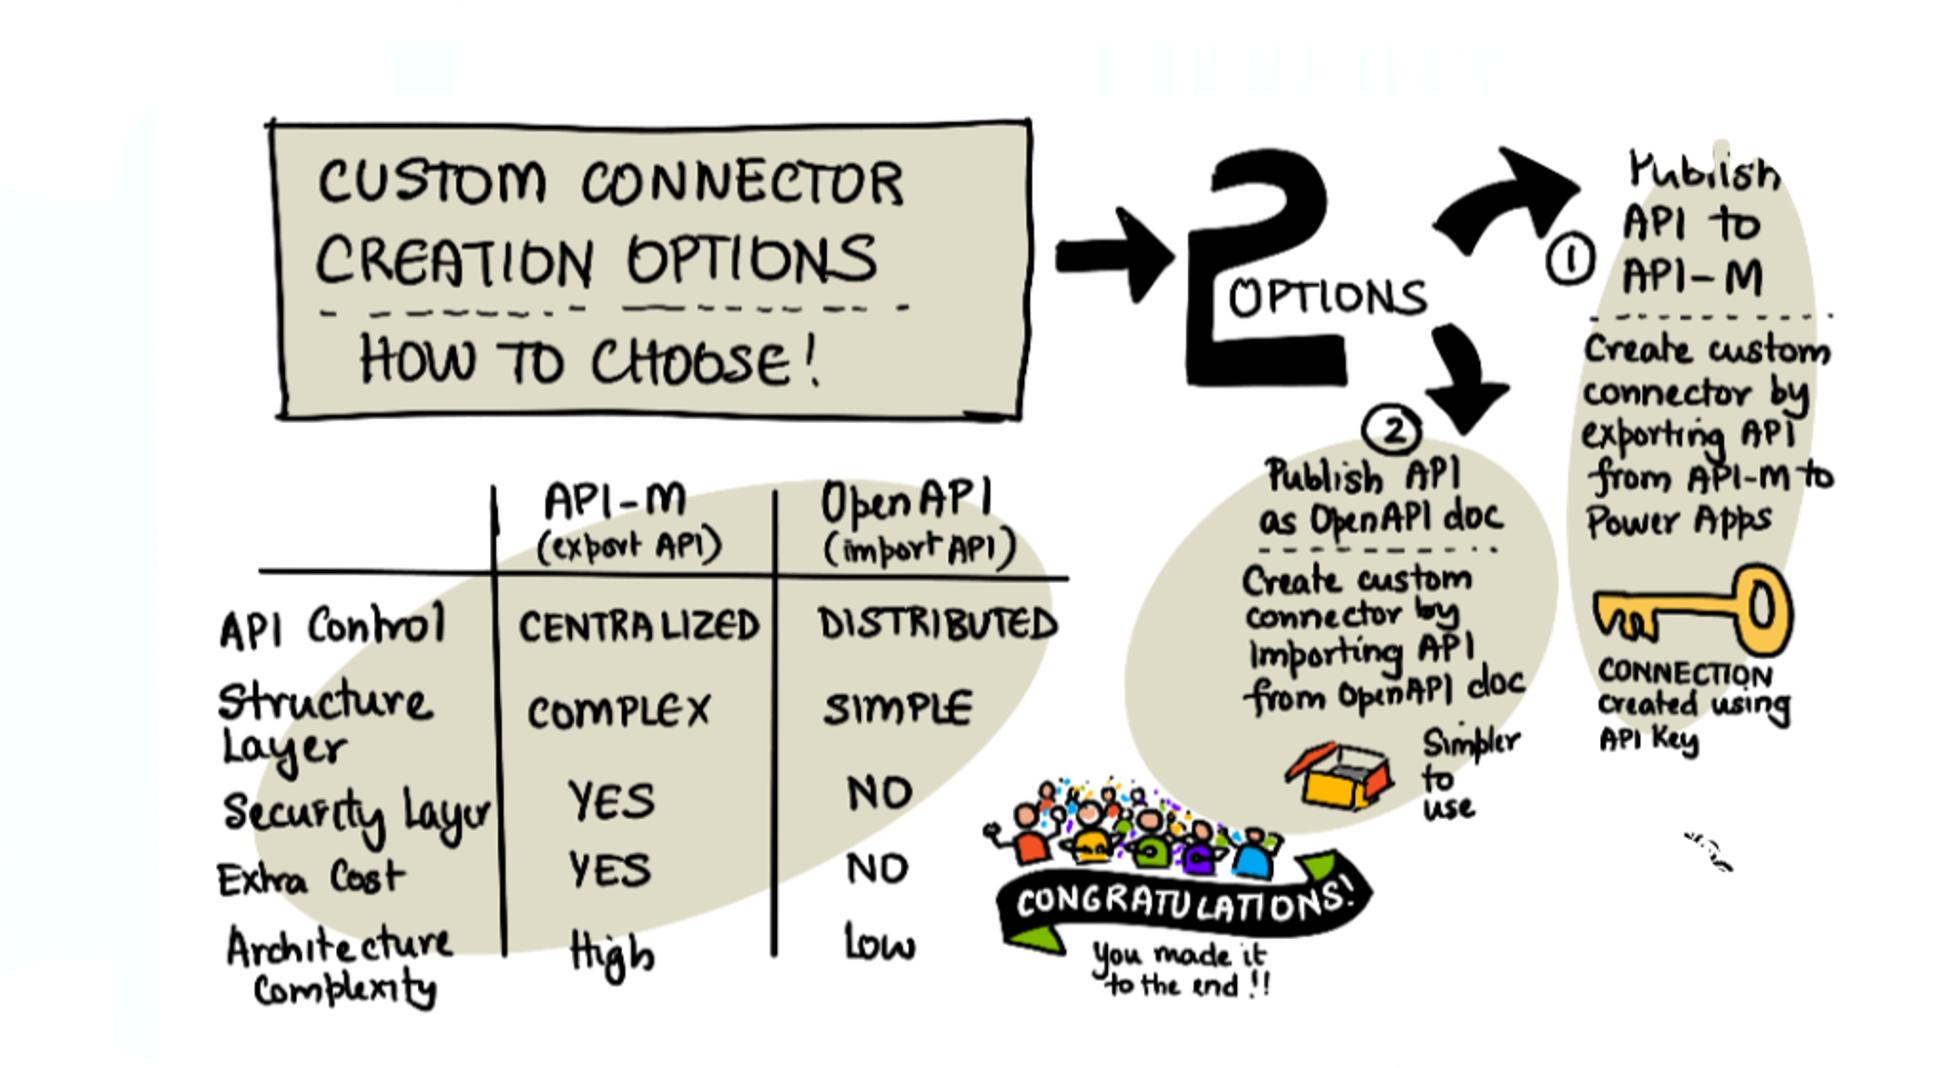 CUSTOM CONNECTOR
CREATION OPTIONS
HOW TO CHOOSE!
2
OPTIONS
1
Publish
API to
API-M
Create custom
connector by
exporting API
from API-M to
Power Apps
CONNECTION
created using
API Key
2
Publish API
as OpenAPI doc
Create custom
connector by
Importing API
from OpenAPI doc
Simpler
to
use
API-M OpenAPI
(export API) (import API)
API Control CENTRALIZED DISTRIBUTED
Structure COMPLEX SIMPLE
Layer
Security Layer YES NO
Extra Cost YES NO
Architecture High Low
Complexity
CONGRATULATIONS!
You made it
to the end!!